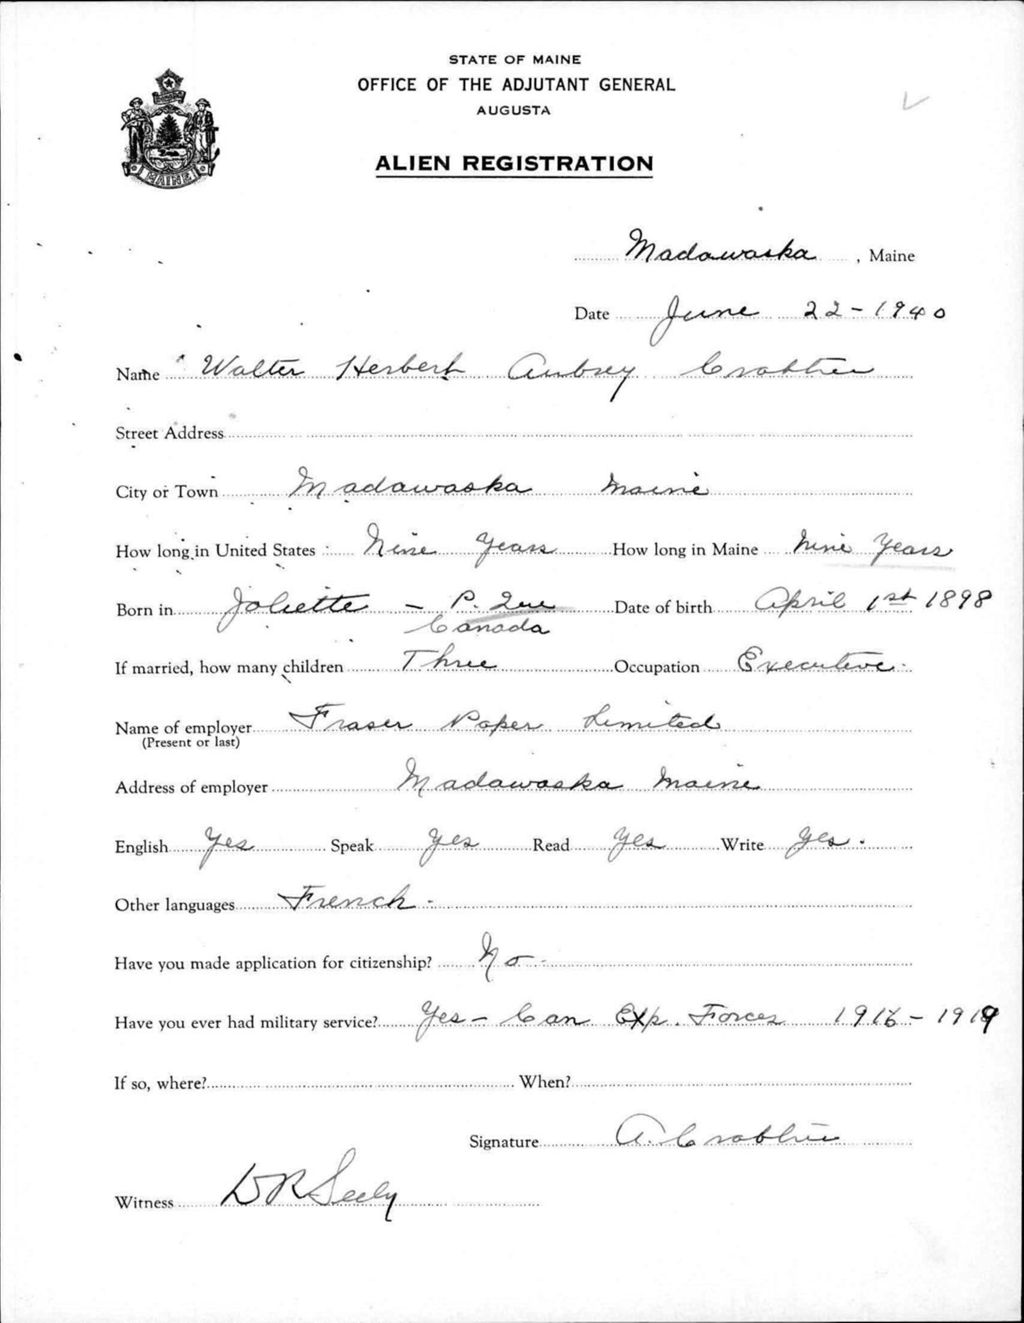 STATE OF MAINE
OFFICE OF THE ADJUTANT GENERAL
AUGUSTA
ALIEN REGISTRATION
MAINE
Madawaska, Maine
Date June 22-1940
Name Walter Herbert Aubrey Crabtree
Street Address
City or Town Madawaska Maine
How long in United States Nine Years How long in Maine Nine Years
Born in Joliette - P. Que Canada Date of birth April 1st 1898
If married, how many children Three Occupation Executive
Name of employer Fraser Paper Limited
(Present or last)
Address of employer Madawaska Maine
English Yes Speak Yes Read Yes Write Yes.
Other languages French -
Have you made application for citizenship? No -
Have you ever had military service? Yes - Can Exp. Forces 1916 - 1919
If so, where? When?
Signature A. Crabtree
Witness D R Seely